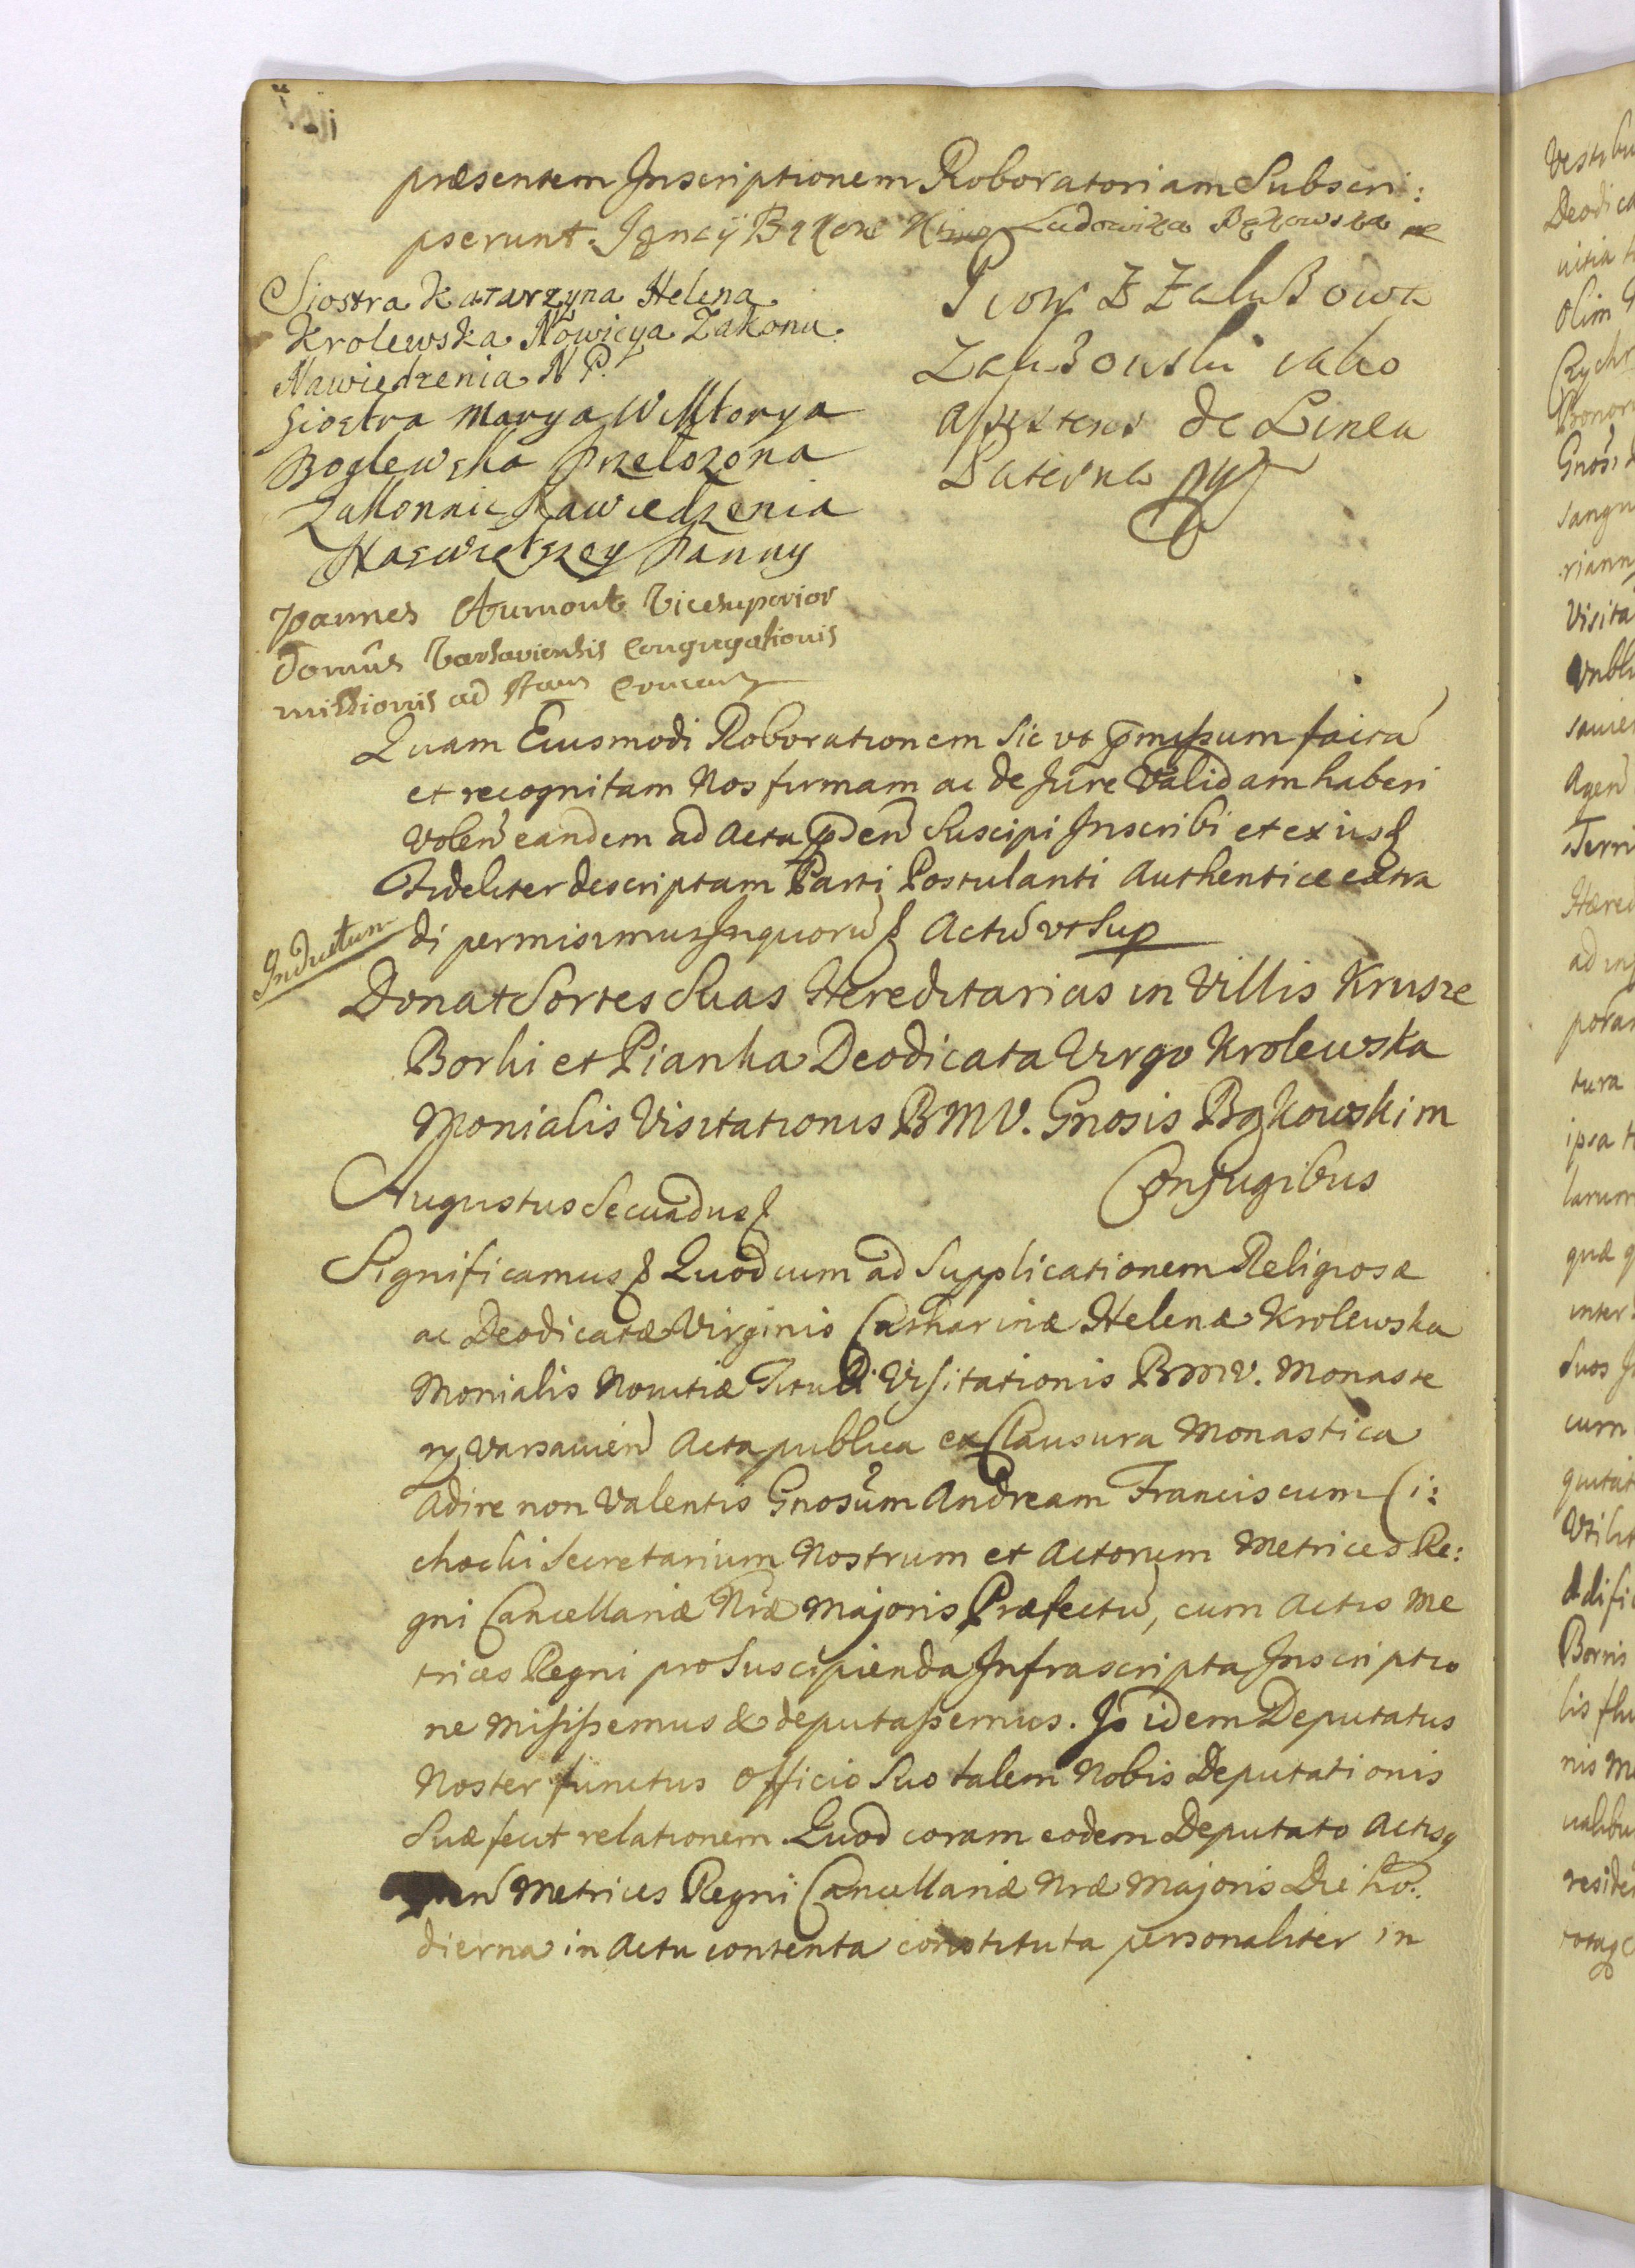 præsentem Inscriptionem Roboratoriam Subscri:
pserunt. Ignacÿ Ludowika Bąkowska
Siostra Katarzyna Helena
Krolewska Nowicya Zakonu
Nawiedzenia N P.
Siostra Marya Wiktorya
Boglewska Przełozona
Zakonnic Nawiedzenia
Naswietszey Panny
Piotr Z Załuskowa
Załuskowski iako
assistens de Linea
Paterna
Joannes Aumont Vicesuperior
Domûs Varsaviensis Congregationis
missionis ad
Quam Eiusmodi Roborationem Sic vt pmissum factã
et recognitam Nos firmam ac de Jure Validam haberi
Volen eandem ad Acta pden Suscipi Inscribi et ex iis
Fideliter descriptam Parti Postulanti Authentice extra
di permisimus Inquorũ Actũ vt Sup
Inductum
Donat Sortes Suas Hereditarias in Villis Krusze
Borki et Pianka Deodicata Virgo Krolewska
Monialis Visitationis BMV. Gnosis Bąkowskim
Conjugibus
Augustus Secundus
Significamus Quod cum ad Supplicationem Religiosæ
ac Deodicatæ Virginis Catharinæ Helenæ Krolewska
Monialis Novitiæ Tituli Visitationis BMV. Monaste
rÿ Varsavien Acta publica ex Clausura Monastica
Adire non Valentis Gnosum Andream Franciscum Ci:
chocki Secretarium Nostrum et Actorum Metrices Re:
gni Cancellariæ Nræ Majoris Præfectũ, cum Actis Me
trices Regni pro Suscipienda Infrascripta Inscriptio
ne misissemus & deputassemus. Is idem Deputatus
Noster functus Officio Suo talem Nobis Deputationis
Suæ fecit relationem. Quod coram eodem Deputato Actisq
Metrices Regni Cancellariæ Nræ Majoris Die ho:
dierna in Actu contenta constituta personaliter in